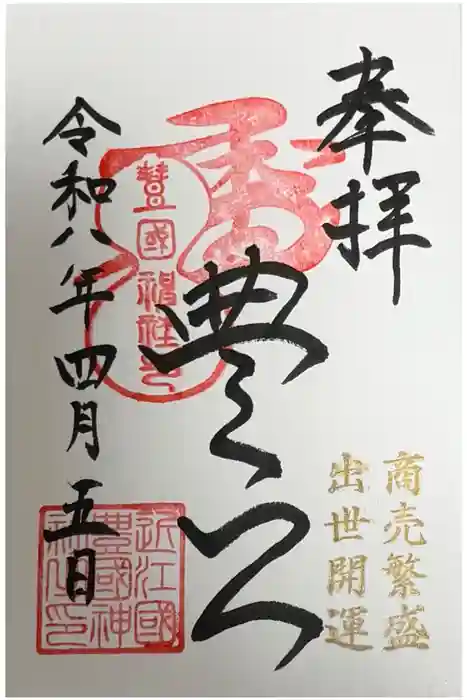 奉拝
商売繁盛
出世開運
豊公
豊國神社
令和八年四月五日
近江國
豊國神